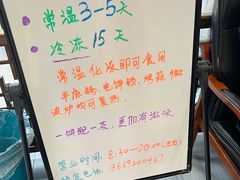 常温3-5天
冷冻15天
常温化冻即可食用
平底锅、电饼铛、烤箱、微
波炉均可复热。
一饼配一茶,更加有滋味
营业时间:8:30-20:00
电话:13669200467